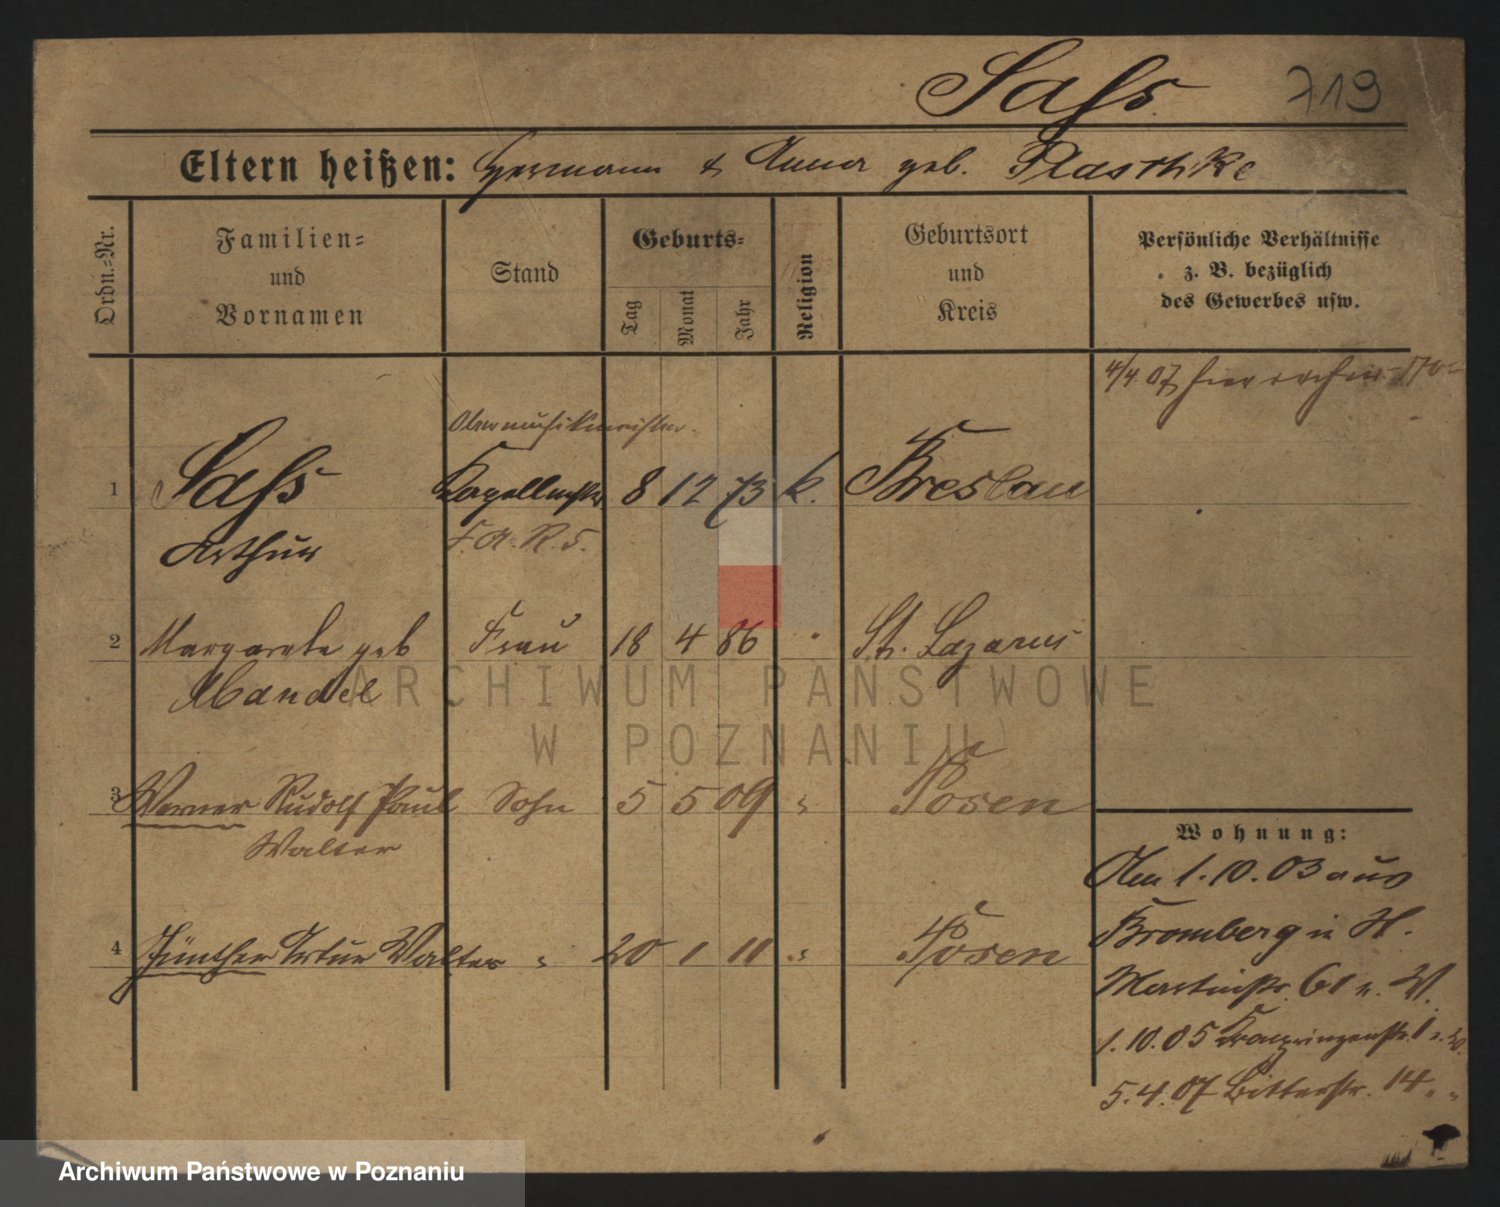 Saß 719
Eltern heißen: Hermann & Anna geb. Plaschke
Ordn.-Nr.
Familien- und Vornamen
Stand
Geburts-
Tag
Monat
Jahr
Religion
Geburtsort und Kreis
Persönliche Verhältnisse
z. B. bezüglich
des Gewerbes usw.
4/4 07
Obermusikmeister
1 Saß Kapellmstr 8 12 73 k. Breslau
Arthur F. A. R. 5.
2 Margarete geb Frau 18 4 86 " St. Lazarus
Mandel
3 Werner Rudolf Paul Sohn 5 5 09 " Posen
Walter
4 Günther Artur Walter " 20 1 11 " Posen
Wohnung:
Am 1.10.03 aus
Bromberg in H.
Martinstr. 61 n. W.
1.10.05 Kronprinzenstr. 1 n. W.
5.4.07 Bitterstr. 14 " "
ARCHIWUM PAŃSTWOWE
W POZNANIU
Archiwum Państwowe w Poznaniu